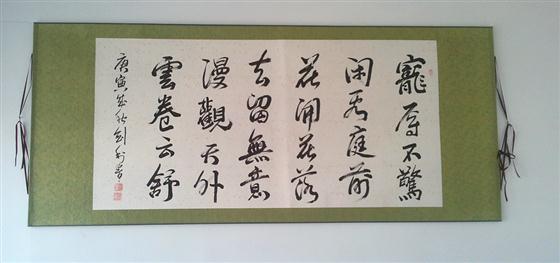 寵辱不驚
閑看庭前
花開花落
去留無意
漫觀天外
雲卷云舒
庚寅 秋